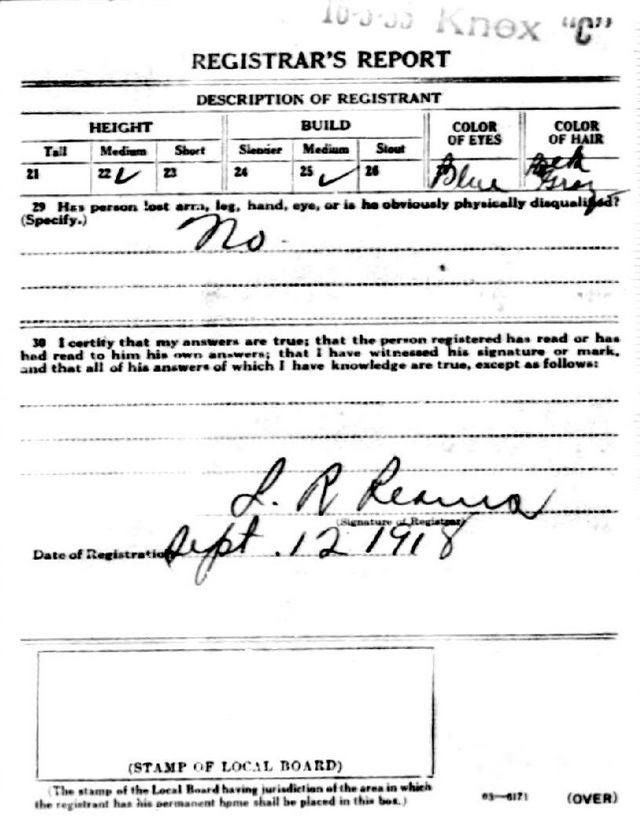 Knox "C"
REGISTRAR'S REPORT
DESCRIPTION OF REGISTRANT
HEIGHT BUILD COLOR OF EYES COLOR OF HAIR
Tall Medium Short Slender Medium Stout
21 22 ✓ 23 24 25 ✓ 26 Blue Gray
29 Has person lost arm, leg, hand, eye, or is he obviously physically disqualified?
(Specify.)
No
30 I certify that my answers are true; that the person registered has read or has
had read to him his own answers; that I have witnessed his signature or mark,
and that all of his answers of which I have knowledge are true, except as follows:
L. R
(Signature of Registrar)
Date of Registration Sept. 12 1918
(STAMP OF LOCAL BOARD)
(The stamp of the Local Board having jurisdiction of the area in which
the registrant has his permanent home shall be placed in this box.)
03—6171 (OVER)